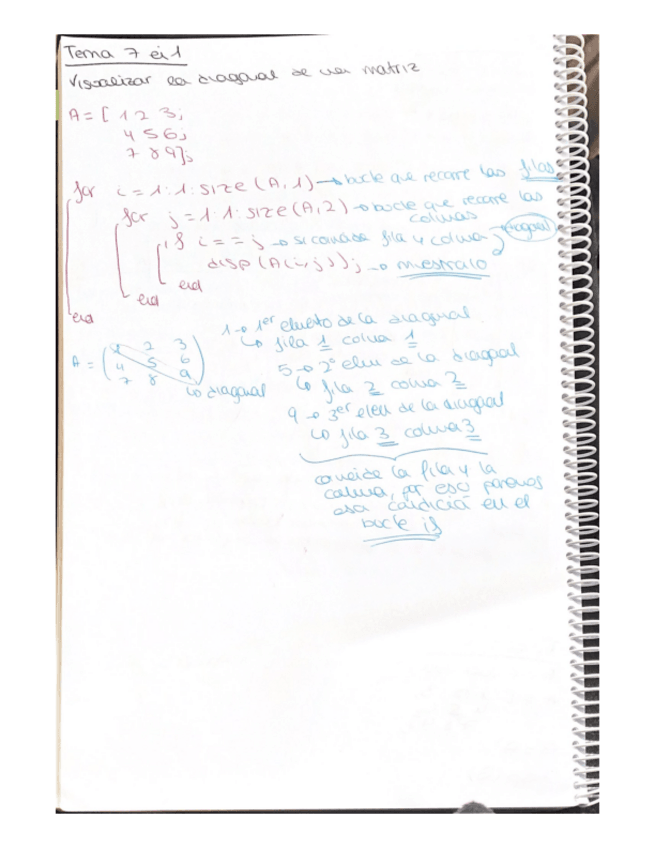 Tema 7 ej 1
Visualizar la diagonal de una matriz
A = [ 1 2 3;
4 5 6;
7 8 9];
for i = 1:1:size(A,1) → bucle que recorre las filas
for j = 1:1:size(A,2) → bucle que recorre las columas
if i == j → si coincide fila y columa } diagonal
disp(A(i,j)); → muestralo
end
end
end
A = ( 1 2 3
4 5 6
7 8 9 )
↳ diagonal
1 → 1er elemento de la diagonal
↳ fila 1 columa 1
5 → 2º elem de la diagonal
↳ fila 2 columa 2
9 → 3er elem de la diagonal
↳ fila 3 columa 3
coincide la fila y la
columa, por eso ponemos
esa condición en el
bucle if